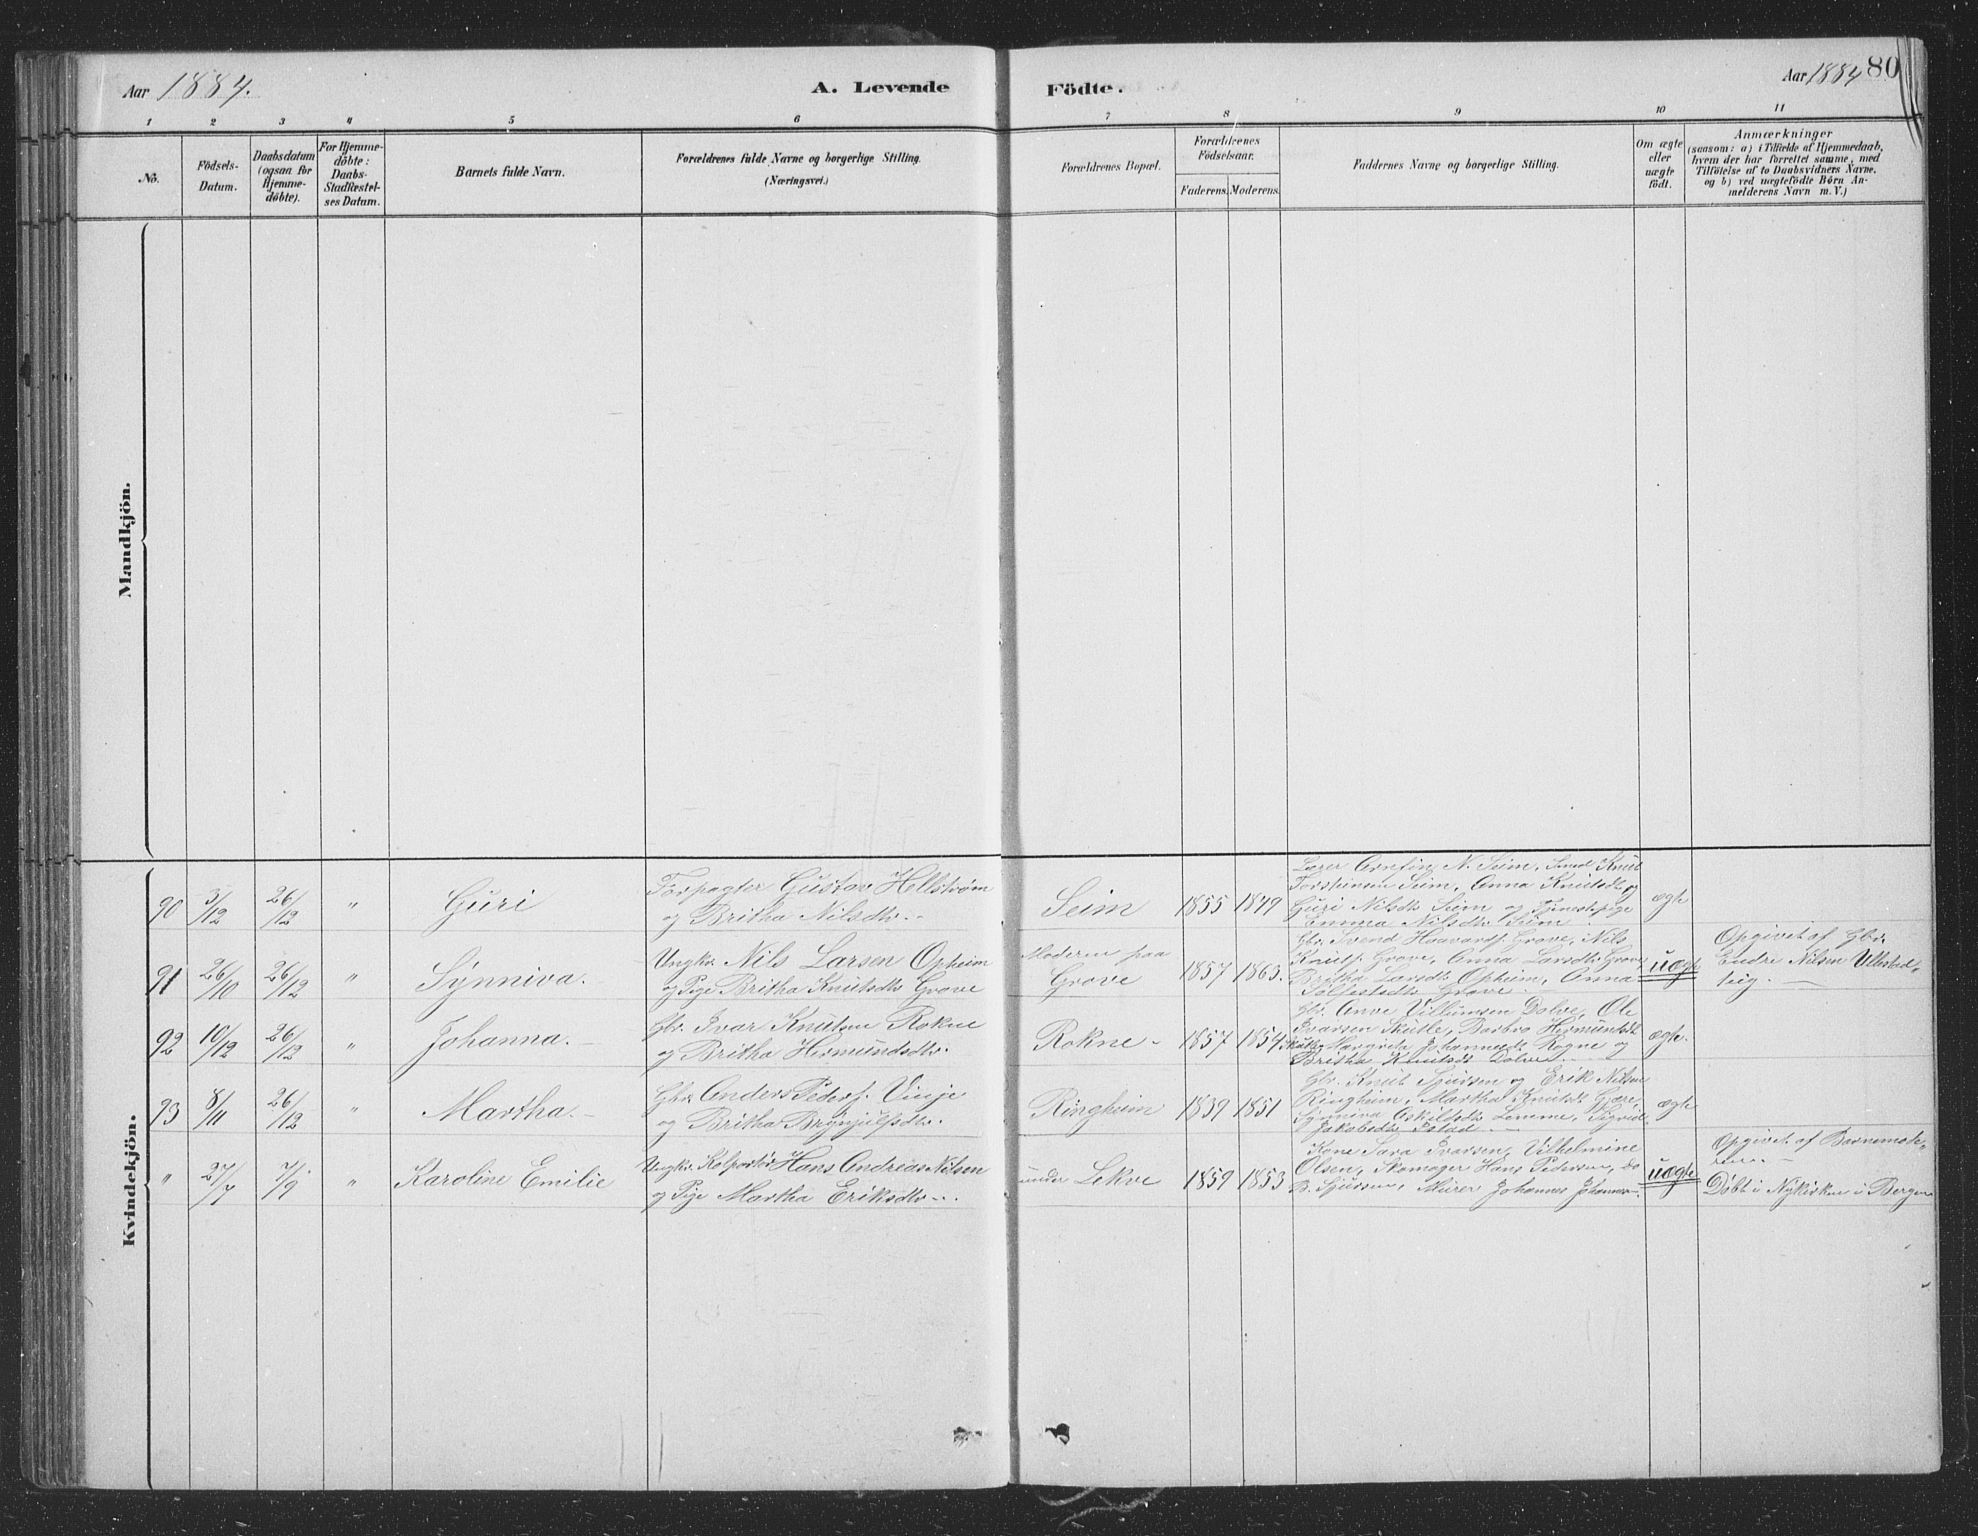 Aar 1884. A. Levende Födte. Aar 1884 80
1 2 3 4 5 6 7 8 9 10 11
No.
Födsels-
Datum.
Daabsdatum
(ogsaa for
Hjemme-
döbte).
For Hjemme-
döbte:
Daabs-
Stadfæstel-
ses Datum.
Barnets fulde Navn.
Forældrenes fulde Navne og borgerlige Stilling.
(Næringsvei.)
Forældrenes Bopæl.
Forældrenes
Födselsaar.
Faderens. Moderens.
Faddernes Navne og borgerlige Stilling.
Om ægte
eller
uægte
födt.
Anmærkninger
(saasom: a) i Tilfælde af Hjemmedaab,
hvem der har forrettet samme, med
Tilföielse af to Daabsvidners Navne,
og b) ved uægtefödte Börn An-
melderens Navn m. V.)
Mandkjön.
Kvindekjön.
90 3/12 26/12 " Guri
Forpagter Gustav Hellström
og Britha Nilsdtr.
Seim 1855 1849
Lærer Arnfin N. Seim, Smed Knut
Torsteinsen Seim, Anna Knutsdtr og
Guri Nilsdtr Seim og Tjenestepige
Emma Nilsdtr Seim
ægte
91 26/10 26/12 " Synniva.
Ungkr Nils Larsen Opheim
og Pige Britha Knutsdtr Grove
Moderen paa
Grove 1857 1863.
Gbr. Svend Haavardsen Grove, Nils
Knuts. Grove, Anna Larsdtr Grove
Britha Larsdtr Opheim, Anna
Grove
uægte
Opgivet af Gbr.
Endre Nilsen Ullestad-
teig.
92 10/12 26/12 " Johanna.
Gbr. Ivar Knutsen Rokne
og Britha Hermundsdtr.
Rokne 1857 1854
Gbr. Anve Villumsen Dolve, Ole
Ivarsen Skutle, Barbro Hermundsdtr
Skutle Margreta Johannesdtr Rogne og
Britha Knutsdtr Dolve
ægte.
93 8/11 26/12 " Martha.
Gbr Anders Peders. Vinje
og Britha Brynjulfsdtr.
Ringheim 1839 1851
Gbr. Knut Sjursen og Erik Nilsen
Ringheim, Martha Knutsdtr Gjære,
Synniva Askildsdtr Lemme, Sigrid
Jakobsdtr Istad
ægte
" 27/7 7/9 " Karoline Emilie
Ungkr. Kolportör Hans Andreas Nilsen
og Pige Martha Eriksdtr.
under Lekve 1859 1853
Kone Sara Ivarsen, Vilhelmine
Olsen, Skomager Hans Pedersen, do
B. Sjursen, Murer Johannes Johannes.
uægte
Opgivet af Barnemode-
ren.
Döbt i Nykirken i Bergen